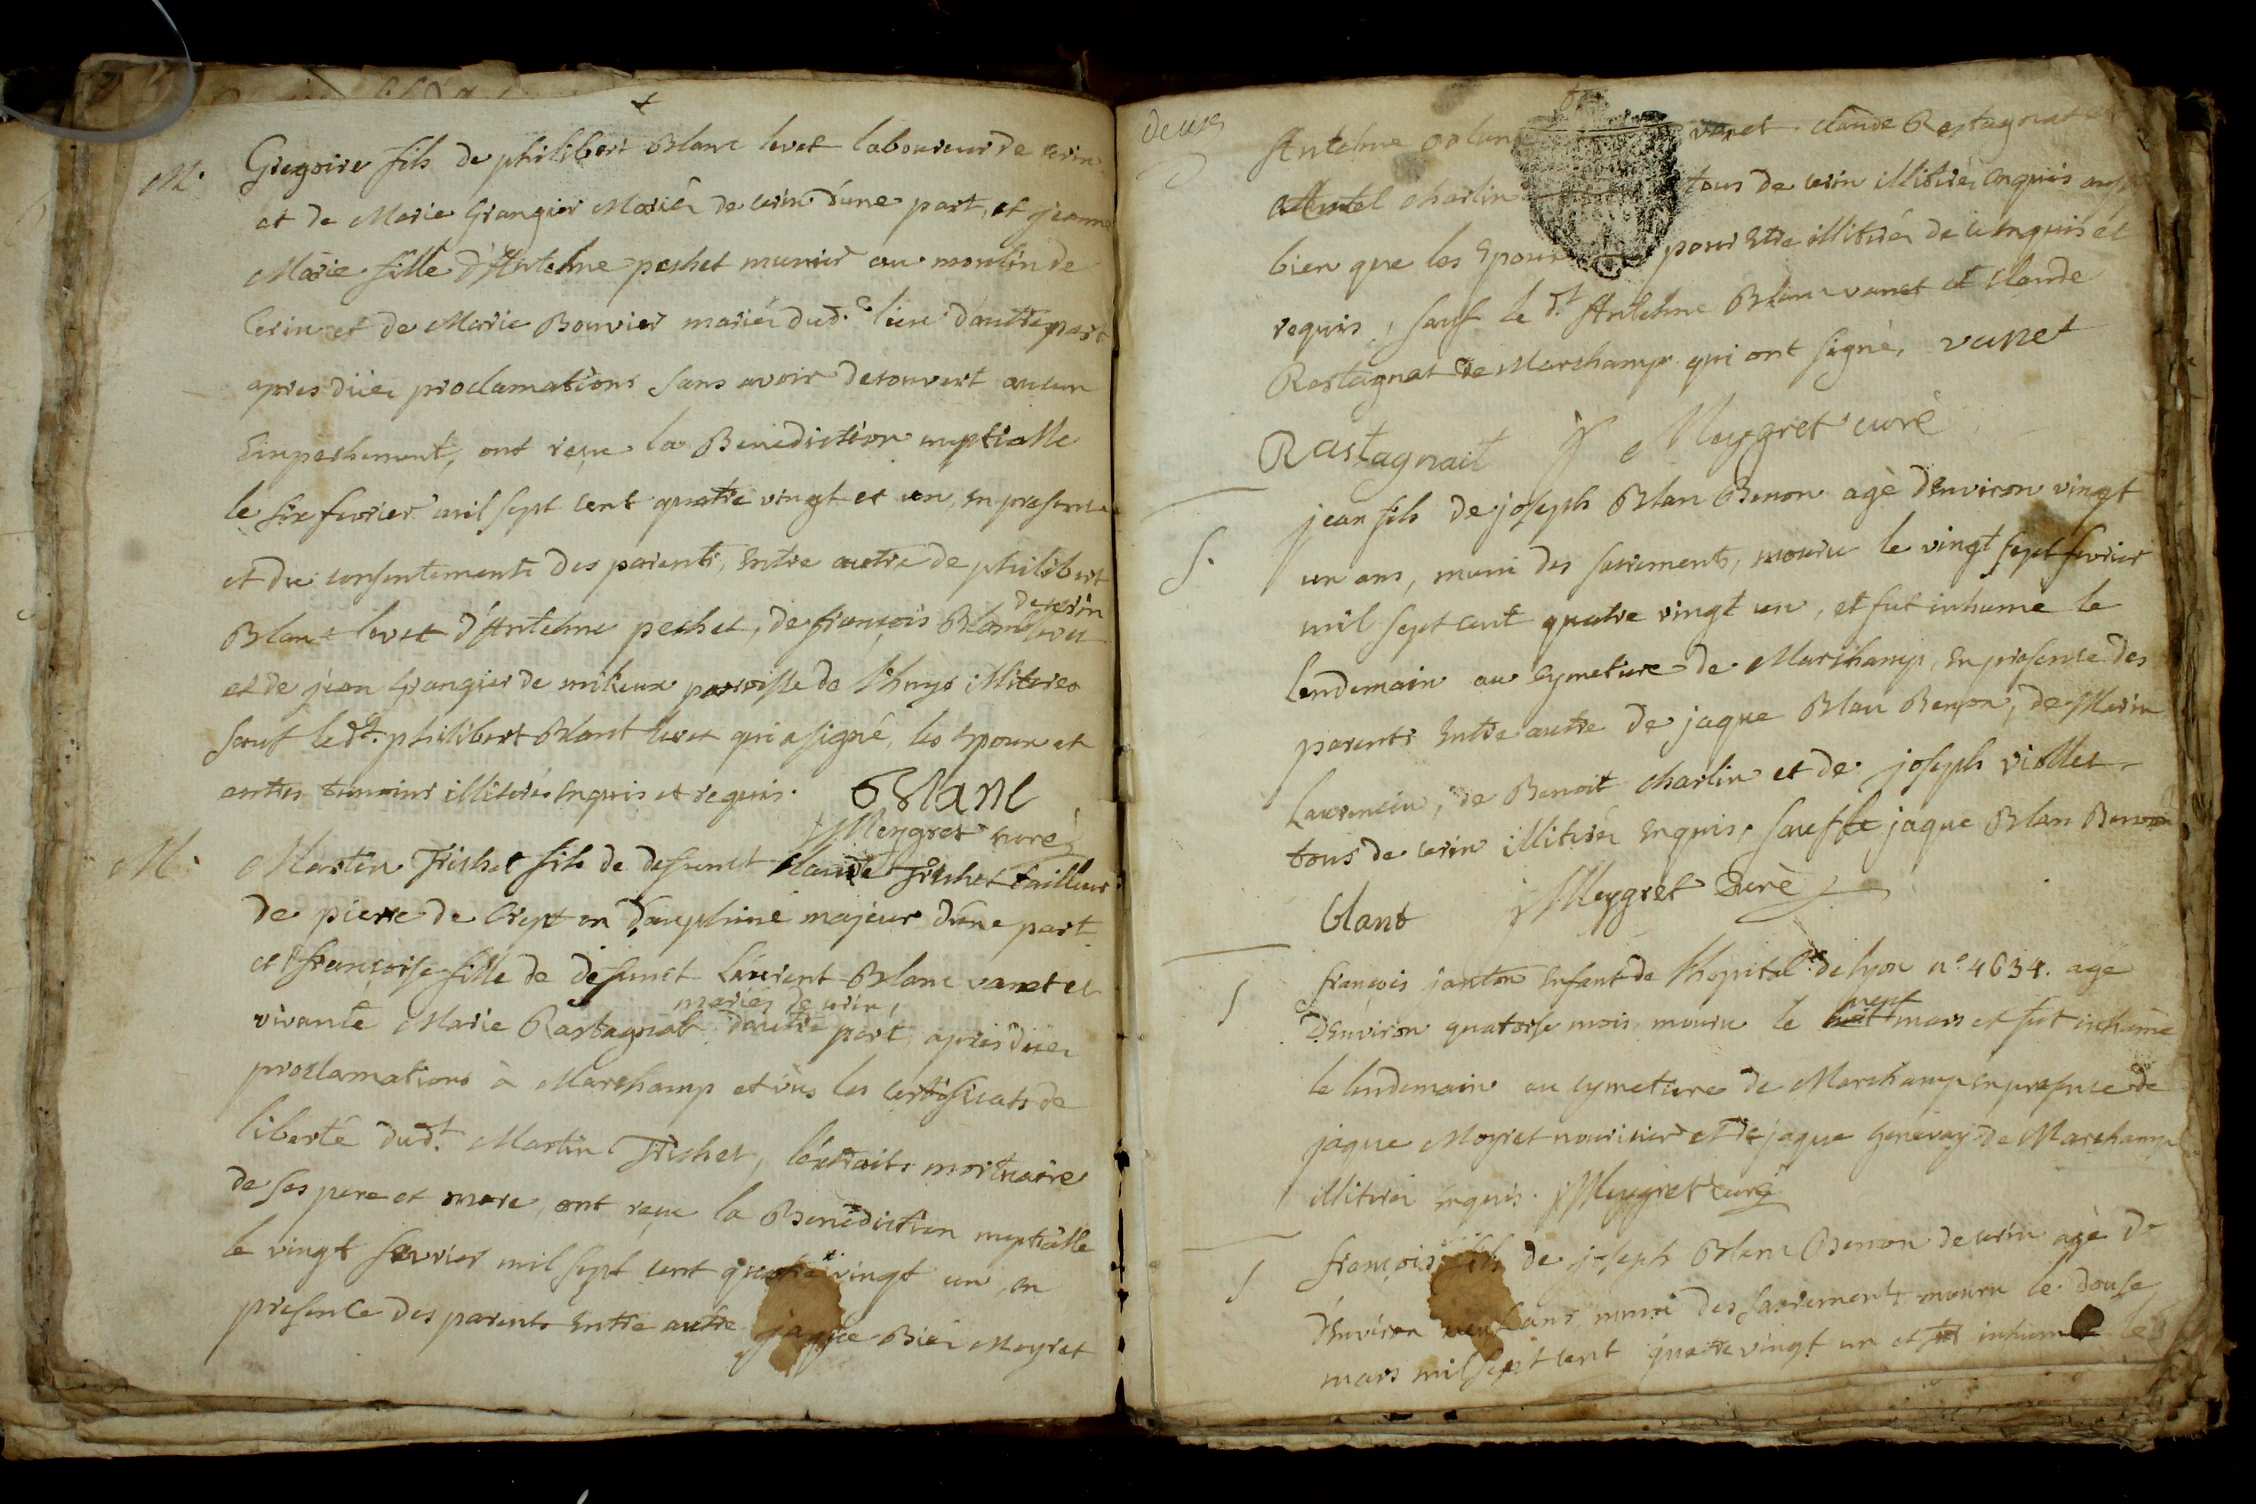 M. Gregoire fils de philibert Blanc levet laboureur de cerin
et de Marie Grangier Mariés de cerin d'une part, et jeanne
Marie fille d'Antelme peshet munier au moulin de
Cerin et de Marie Bouvier mariés dud. lieu d'autre part
apres düe proclamations sans avoir decouvert aucun
Empeshement, ont reçu la Benediction nuptialle
le six fevrier mil sept cent quatre vingt et un, en presence
et du consentements des parents, Entre autre de philibert
Blanc levet d'Antelme peshet, de françois Blanc levet de cerin
et de jean Grangier de mikeux parroisse de Lhuys illiteres
sauf led.t philibert Blanc levet qui a signé, les Epoux et
autres temoins illiterés Enquis et requis. BLANC
j Meygret curé
M. Martin Trishet fils de defunct claude Trishet tailleur
de pierre de Crept en Dauphiné majeur d'une part
et françoise fille de defunct Laurent Blanc vanet et
vivante Marie Rastagnat mariés de cerin, d'autre part, après düe
proclamations à Marchamp et vûs les certificats de
liberté dud.t Martin Trishet, l'extraits mortuaire
de ses pere et mere, ont reçu la Benediction nuptialle
le vingt fevrier mil sept cent quatre vingt un, en
presence des parents Entre autre jaque Bié Meyret
deux
Antelme Blanc vanet claude Rastagnat et
Antel charlin tous de cerin illiterés Enquis aussy
bien que les Epoux pour Etre illiterés de ce Enquis et
requis, sauf le d.t Antelme Blanc vanet et claude
Rastagnat de Marchamp qui ont signé, vanet
Rastagnait j Meygret curé
S. jean fils de joseph Blan Benon agé d'Environ vingt
un ans, muni des sacrements, mouru le vingt sept fevrier
mil sept cent quatre vingt un, et fut inhumé le
lendemain au cymetiere de Marchamp, en presence des
parents Entre autre de jaque Blan Benon, de Marin
Laurencin, de Benoit charlin et de joseph viollet
tous de cerin illiterés Enquis, sauf le jaque Blan Benon
blant j Meygret Curé
S françois janton Enfant de l'hopital de lyon n° 4634. age
d'Environ quatorse mois mouru le neuf mars et fut inhumé
le lendemain au cymetiere de Marchamp en presence de
jaque Moyret nouricier et de jaque Genevay de Marchamp
illiterés enquis. j Meygret curé
S françois fils de joseph Blanc Benon de cerin agé d
d'Environ ans, muni des sacrements mouru le douse
mars mil sept cent quatre vingt un et fut inhumé le